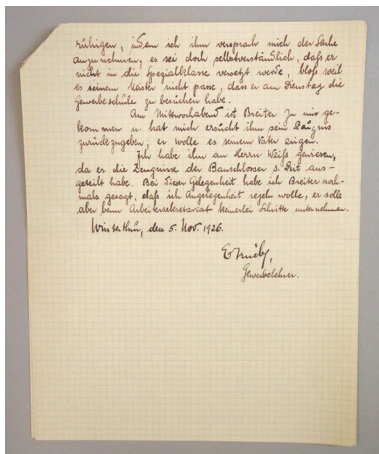 ruhigen, indem ich ihm versprach mich der Sache
anzunehmen, es sei doch selbstverständlich, daß er
nicht in die Spezialklasse versetzt werde, bloß weil
es seinem Meister nicht passe, daß er am Dienstag die
Gewerbeschule zu besuchen habe.
Am Mittwochabend ist Breiter zu mir ge-
kommen u. hat mich ersucht ihm sein Zeugnis
zurückzugeben, er wolle es seinem Vater zeigen.
Ich habe ihn an Herrn Weiß gewiesen,
da er die Zeugnisse der Bauschlosser s. Zeit aus-
geteilt habe. Bei dieser Gelegenheit habe ich Breiter noch-
mals gesagt, daß ich Angelegenheit regeln wolle, er solle
aber beim Arbeitersekretariat keinerlei Schritte unternehmen.
Winterthur, den 5. Nov. 1926.
Gewerbelehrer.